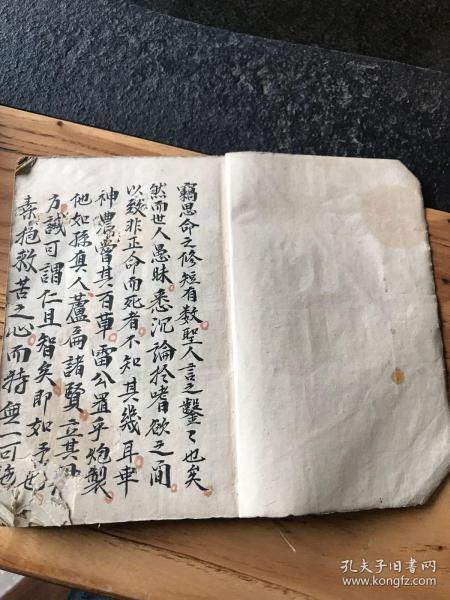 竊思命之修短有数聖人言之鑿〻也矣
然而世人愚昧悉沉論扵嗜欲之间
以致非正命而死者不知其幾耳幸
神農嘗其百草雷公置乎炮製
他如孫真人蘆扁諸賢立其
方誠可謂仁且智矣即如予
素抱救苦之心而特無一可
孔夫子旧书网
www.kongfz.com